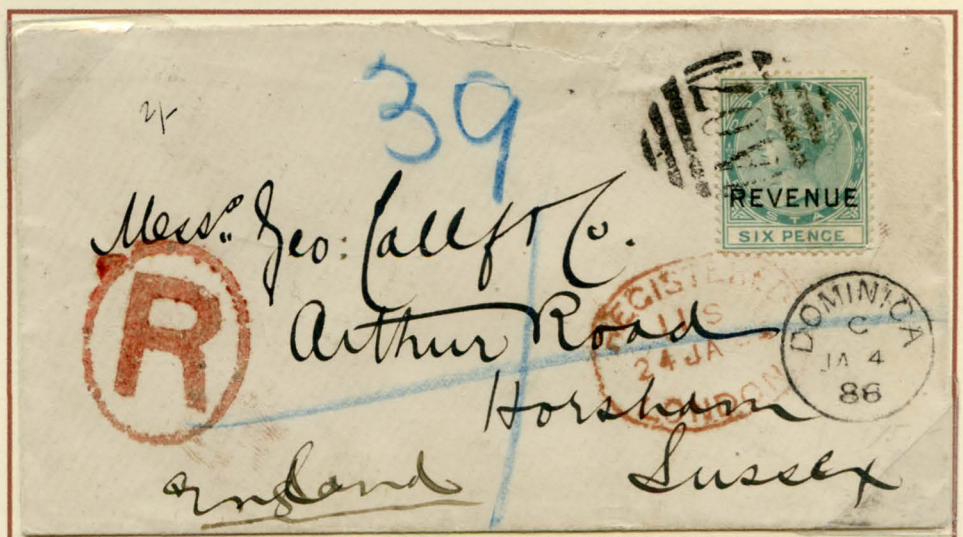 39
A07
DOMINICA
REVENUE
SIX PENCE
Mess.rs Geo: Callf & Co.
Arthur Road
Horsham
Sussex
England
R
REGISTERED
24 JA
LONDON
DOMINICA
C
JA 4
86